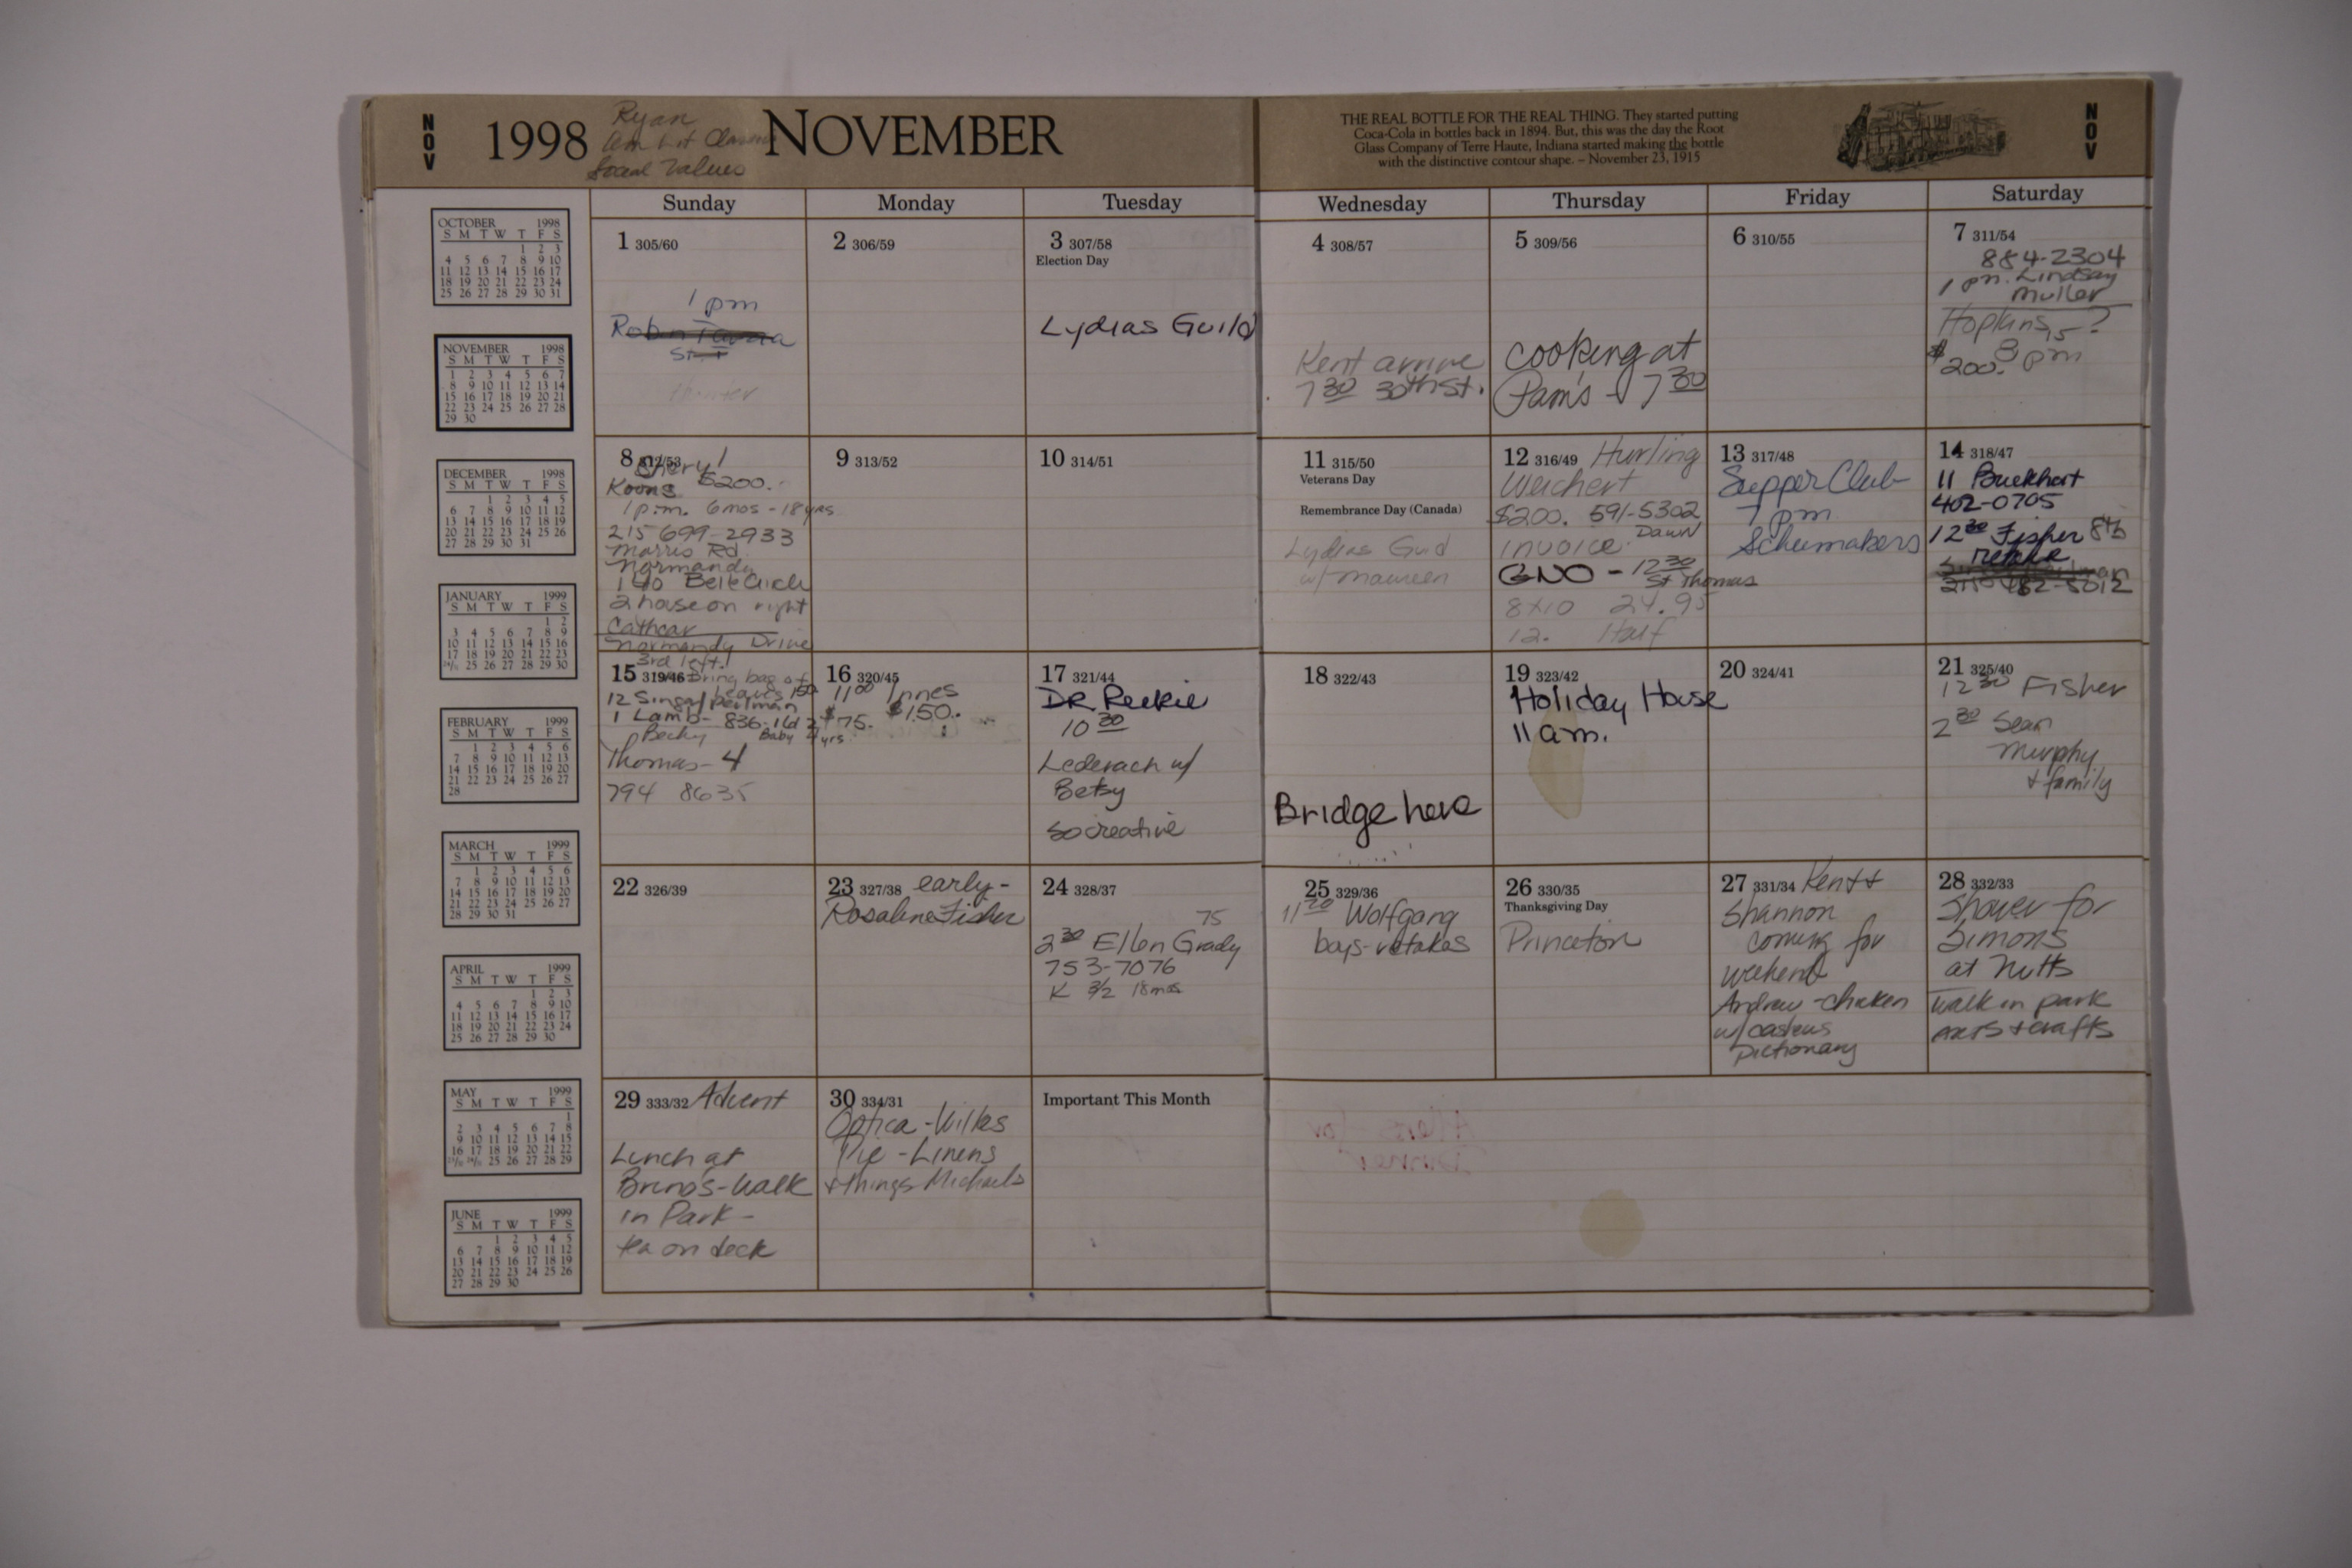 NOV
1998 NOVEMBER
Ryan
Social Values
THE REAL BOTTLE FOR THE REAL THING. They started putting
Coca-Cola in bottles back in 1894. But, this was the day the Root
Glass Company of Terre Haute, Indiana started making the bottle
with the distinctive contour shape. – November 23, 1915
NOV
Sunday Monday Tuesday Wednesday Thursday Friday Saturday
OCTOBER 1998
S M T W T F S
1 2 3
4 5 6 7 8 9 10
11 12 13 14 15 16 17
18 19 20 21 22 23 24
25 26 27 28 29 30 31
NOVEMBER 1998
S M T W T F S
1 2 3 4 5 6 7
8 9 10 11 12 13 14
15 16 17 18 19 20 21
22 23 24 25 26 27 28
29 30
DECEMBER 1998
S M T W T F S
1 2 3 4 5
6 7 8 9 10 11 12
13 14 15 16 17 18 19
20 21 22 23 24 25 26
27 28 29 30 31
JANUARY 1999
S M T W T F S
1 2
3 4 5 6 7 8 9
10 11 12 13 14 15 16
17 18 19 20 21 22 23
24/31 25 26 27 28 29 30
FEBRUARY 1999
S M T W T F S
1 2 3 4 5 6
7 8 9 10 11 12 13
14 15 16 17 18 19 20
21 22 23 24 25 26 27
28
MARCH 1999
S M T W T F S
1 2 3 4 5 6
7 8 9 10 11 12 13
14 15 16 17 18 19 20
21 22 23 24 25 26 27
28 29 30 31
APRIL 1999
S M T W T F S
1 2 3
4 5 6 7 8 9 10
11 12 13 14 15 16 17
18 19 20 21 22 23 24
25 26 27 28 29 30
MAY 1999
S M T W T F S
1
2 3 4 5 6 7 8
9 10 11 12 13 14 15
16 17 18 19 20 21 22
23/30 24/31 25 26 27 28 29
JUNE 1999
S M T W T F S
1 2 3 4 5
6 7 8 9 10 11 12
13 14 15 16 17 18 19
20 21 22 23 24 25 26
27 28 29 30
1 305/60
1 pm
2 306/59
3 307/58
Election Day
Lydias Guild
4 308/57
Kent arrive
7 30 30th St.
5 309/56
cooking at
Pam's - 7 30
6 310/55
7 311/54
884-2304
1 pm. Lindsay
Muller
Hopkins 15?
$200. 3 pm
8 312/53
Sheryl
Koons $200.
1 p.m. 6mos - 18yrs
215 699-2933
Morris Rd.
Normandy
140 Belle Circle
2 house on right
Cathcar
Normandy Drive
3rd left!
9 313/52
10 314/51
11 315/50
Veterans Day
Remembrance Day (Canada)
Lydias Guild
w/ Maureen
12 316/49 Hurling
Weichert
$200. 591-5302
Dawn
invoice
GNO - 12 30
St Thomas
8x10 24.95
12. Half
13 317/48
Supper Club
7 pm
Schumakers
14 318/47
11 Burkhart
402-0705
12 30 Fisher 8th
retake
15 319/46 Bring bag of
leaves 150
12 Singal Perlman
1 Lamb - 836-
Becky Baby
yrs
Thomas - 4
794 8635
16 320/45
11 00 Innes
$75. $150.
17 321/44
DR. Reekie
10 30
Lederach w/
Betsy
so creative
18 322/43
Bridge here
19 323/42
Holiday House
11 am.
20 324/41
21 325/40
12 30 Fisher
2 30 Sean
Murphy
+ family
22 326/39
23 327/38 early -
Rosaline Fisher
24 328/37
75
2 30 Ellen Grady
753-7076
K 3½ 18mos
25 329/36
11 30 Wolfgang
boys - retakes
26 330/35
Thanksgiving Day
Princeton
27 331/34 Kent +
Shannon
coming for
weekend
Andrew - chicken
w/ cashews
Pictionary
28 332/33
Shower for
Simons
at Nutts
walk in park
arts + crafts
29 333/32 Advent
Lunch at
Bruno's - walk
in Park -
tea on deck
30 334/31
Optica - Wilkes
Pie - Linens
+ things Michaels
Important This Month